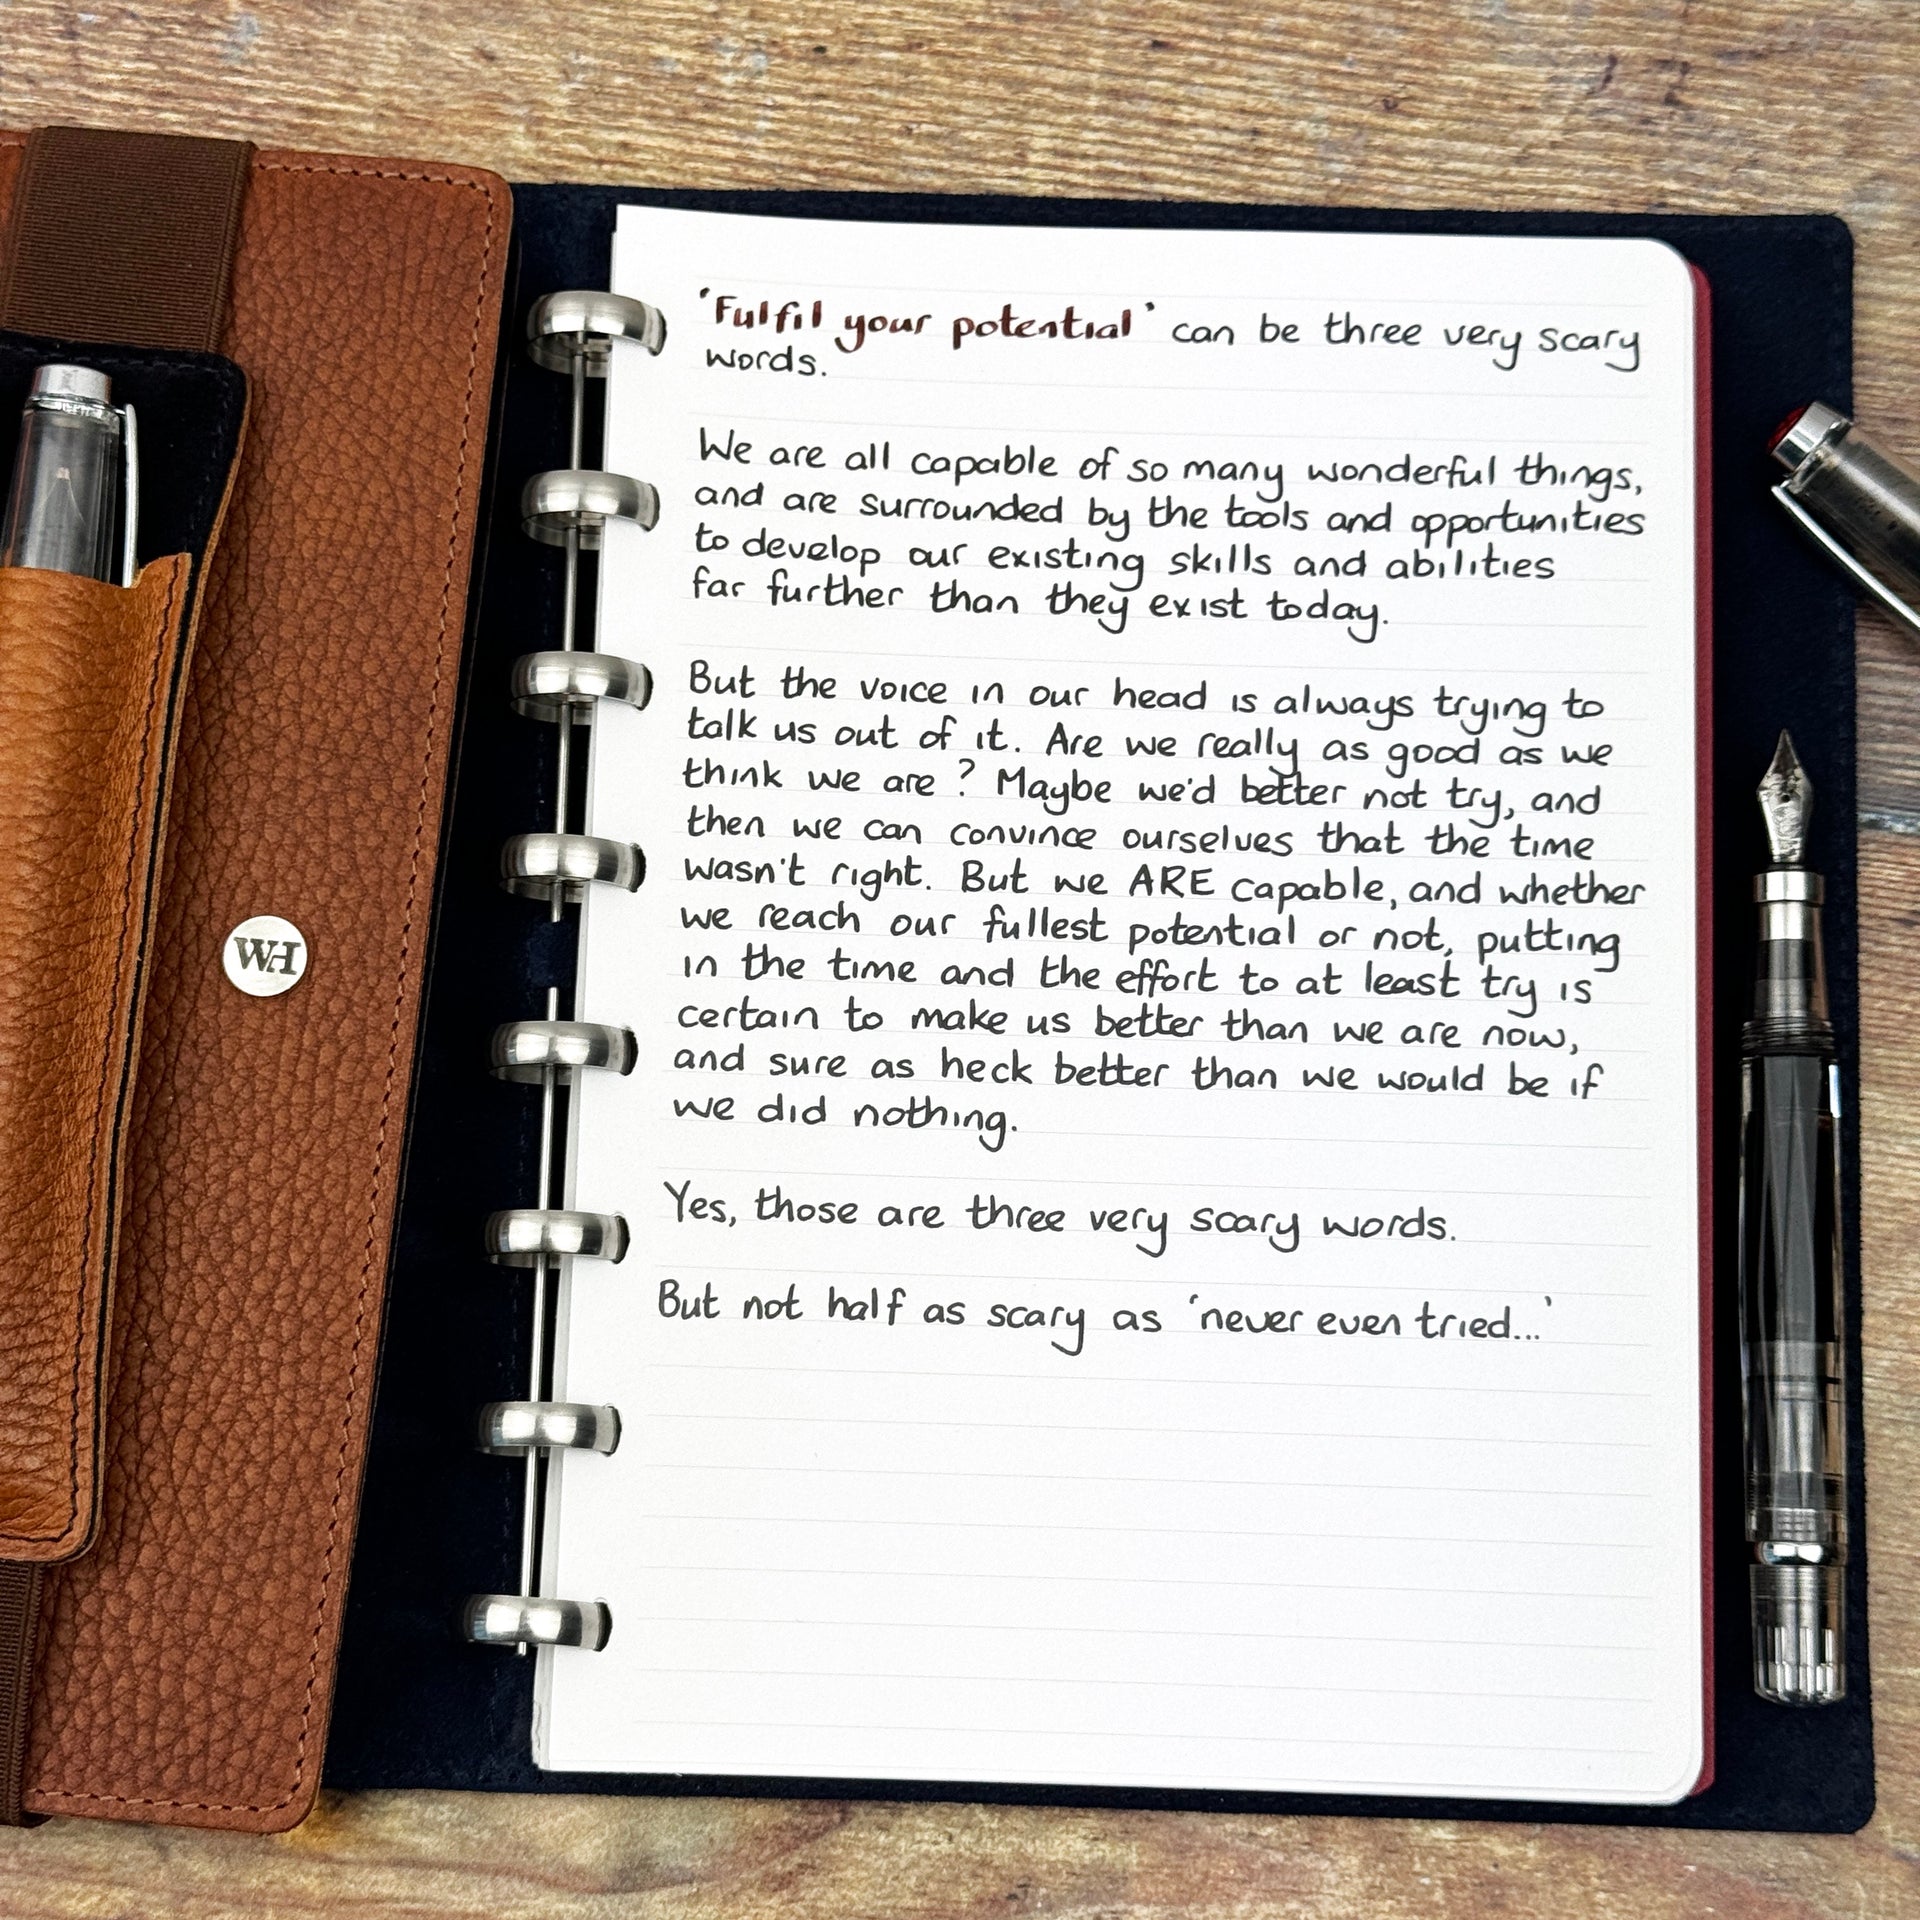 WH
'Fulfil your potential' can be three very scary
words.
We are all capable of so many wonderful things,
and are surrounded by the tools and opportunities
to develop our existing skills and abilities
far further than they exist today.
But the voice in our head is always trying to
talk us out of it. Are we really as good as we
think we are? Maybe we'd better not try, and
then we can convince ourselves that the time
wasn't right. But we ARE capable, and whether
we reach our fullest potential or not, putting
in the time and the effort to at least try is
certain to make us better than we are now,
and sure as heck better than we would be if
we did nothing.
Yes, those are three very scary words.
But not half as scary as 'never even tried...'